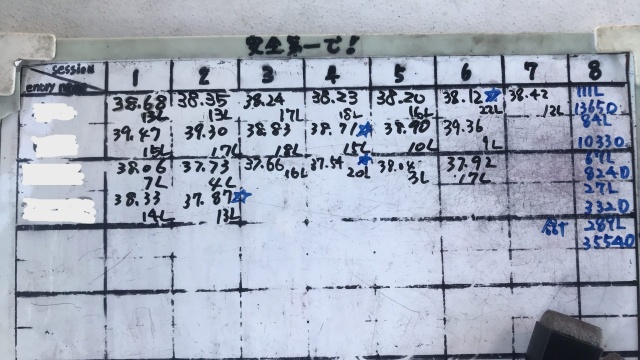 安全第一で!
session 1 2 3 4 5 6 7 8
entry name
38.68 38.35 38.24 38.23 38.20 38.12☆ 38.42 111L
13L 13L 17L 18L 16L 22L 12L 13650
39.47 39.30 38.83 38.71☆ 38.90 39.36 84L
15L 17L 18L 15L 10L 9L 10330
38.06 37.73 37.66 37.54☆ 38.04 37.92 67L
7L 4L 16L 20L 3L 17L 8240
38.33 37.87☆ 27L
14L 13L 3320
合計 289L
35540